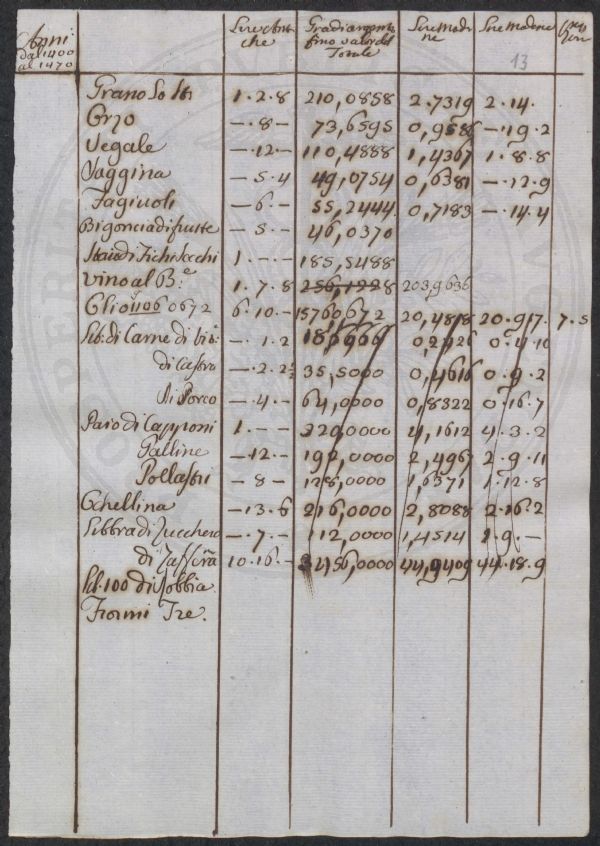 Anni dal 1400 al 1470
Lire Anti che
Gradi argento fino valor del Totale
Lire Modene
Lire Modene
13
Grano Lo St: 1.2.8 210,0858 2.7319 2.14.
Orzo -.8- 73,6595 0,9588 -.19.2
Segale -.12- 110,4888 1,4367 1.8.8
Saggina -.5.4 49,0754 0,6381 -.12.9
Fagiuoli -.6- 55,2444 0,7183 -.14.4
Bigoncia di frutte -.5- 46,0370
Staio di Fichi Secchi 1.-.- 185,5488
Vino al B.e 1.7.8 256,1228 203,9636
Olio 1106 0672 6.10.- 15760,672 20,4818 20.9.7. 7.5
Lib: di Carne di -.1.2 0.4.10
di Castro -.2.2½ 35,5000 0,4616 0.9.2
di Porco -.4- 64,0000 0,8322 0.16.7
Paio di Capponi 1.-- 320,0000 4,1612 4.3.2
Galline -.12- 192,0000 2,4967 2.9.11
Pollastri -8- 128,0000 1,6371 1.12.8
Ghellina -.13.6 216,0000 2,8088 2.16.2
Libbra di Zucchero -.7- 112,0000 1,4514 1.9.-
di Zaffarã 10.16.- 3456,0000 44,9409 44.18.9
Lib. 100 di
Tre.